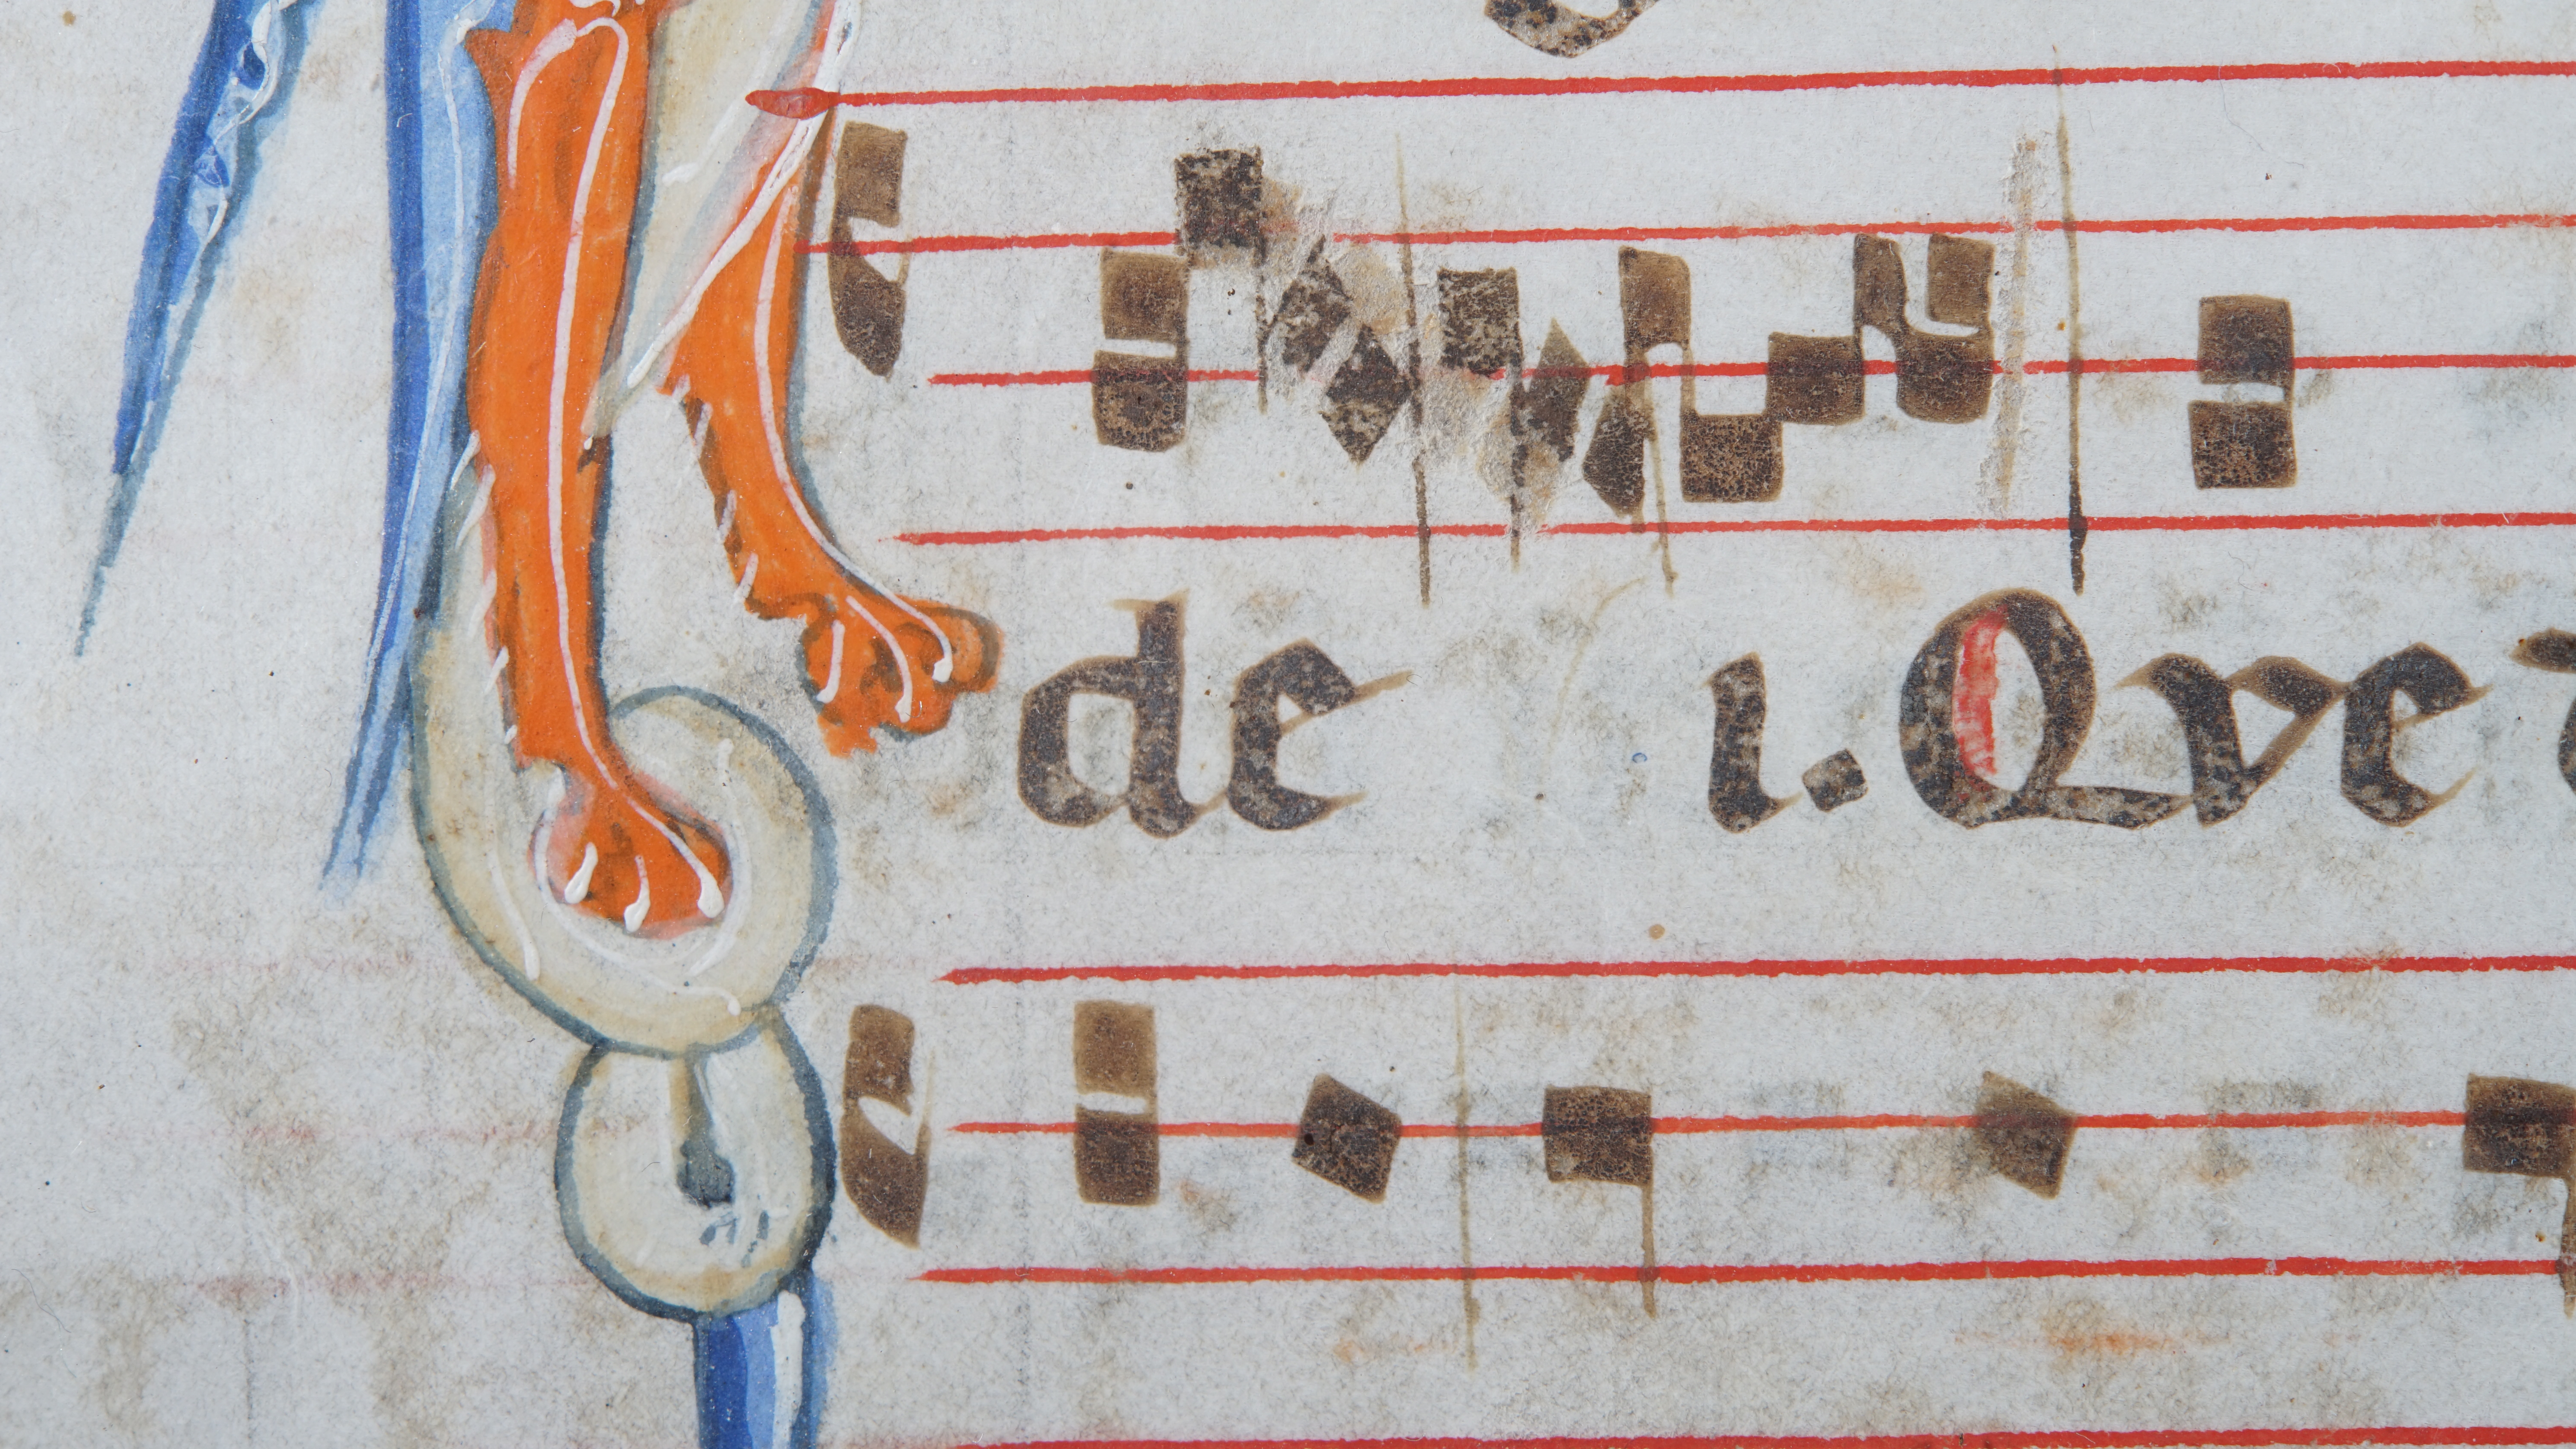 de i. Qve